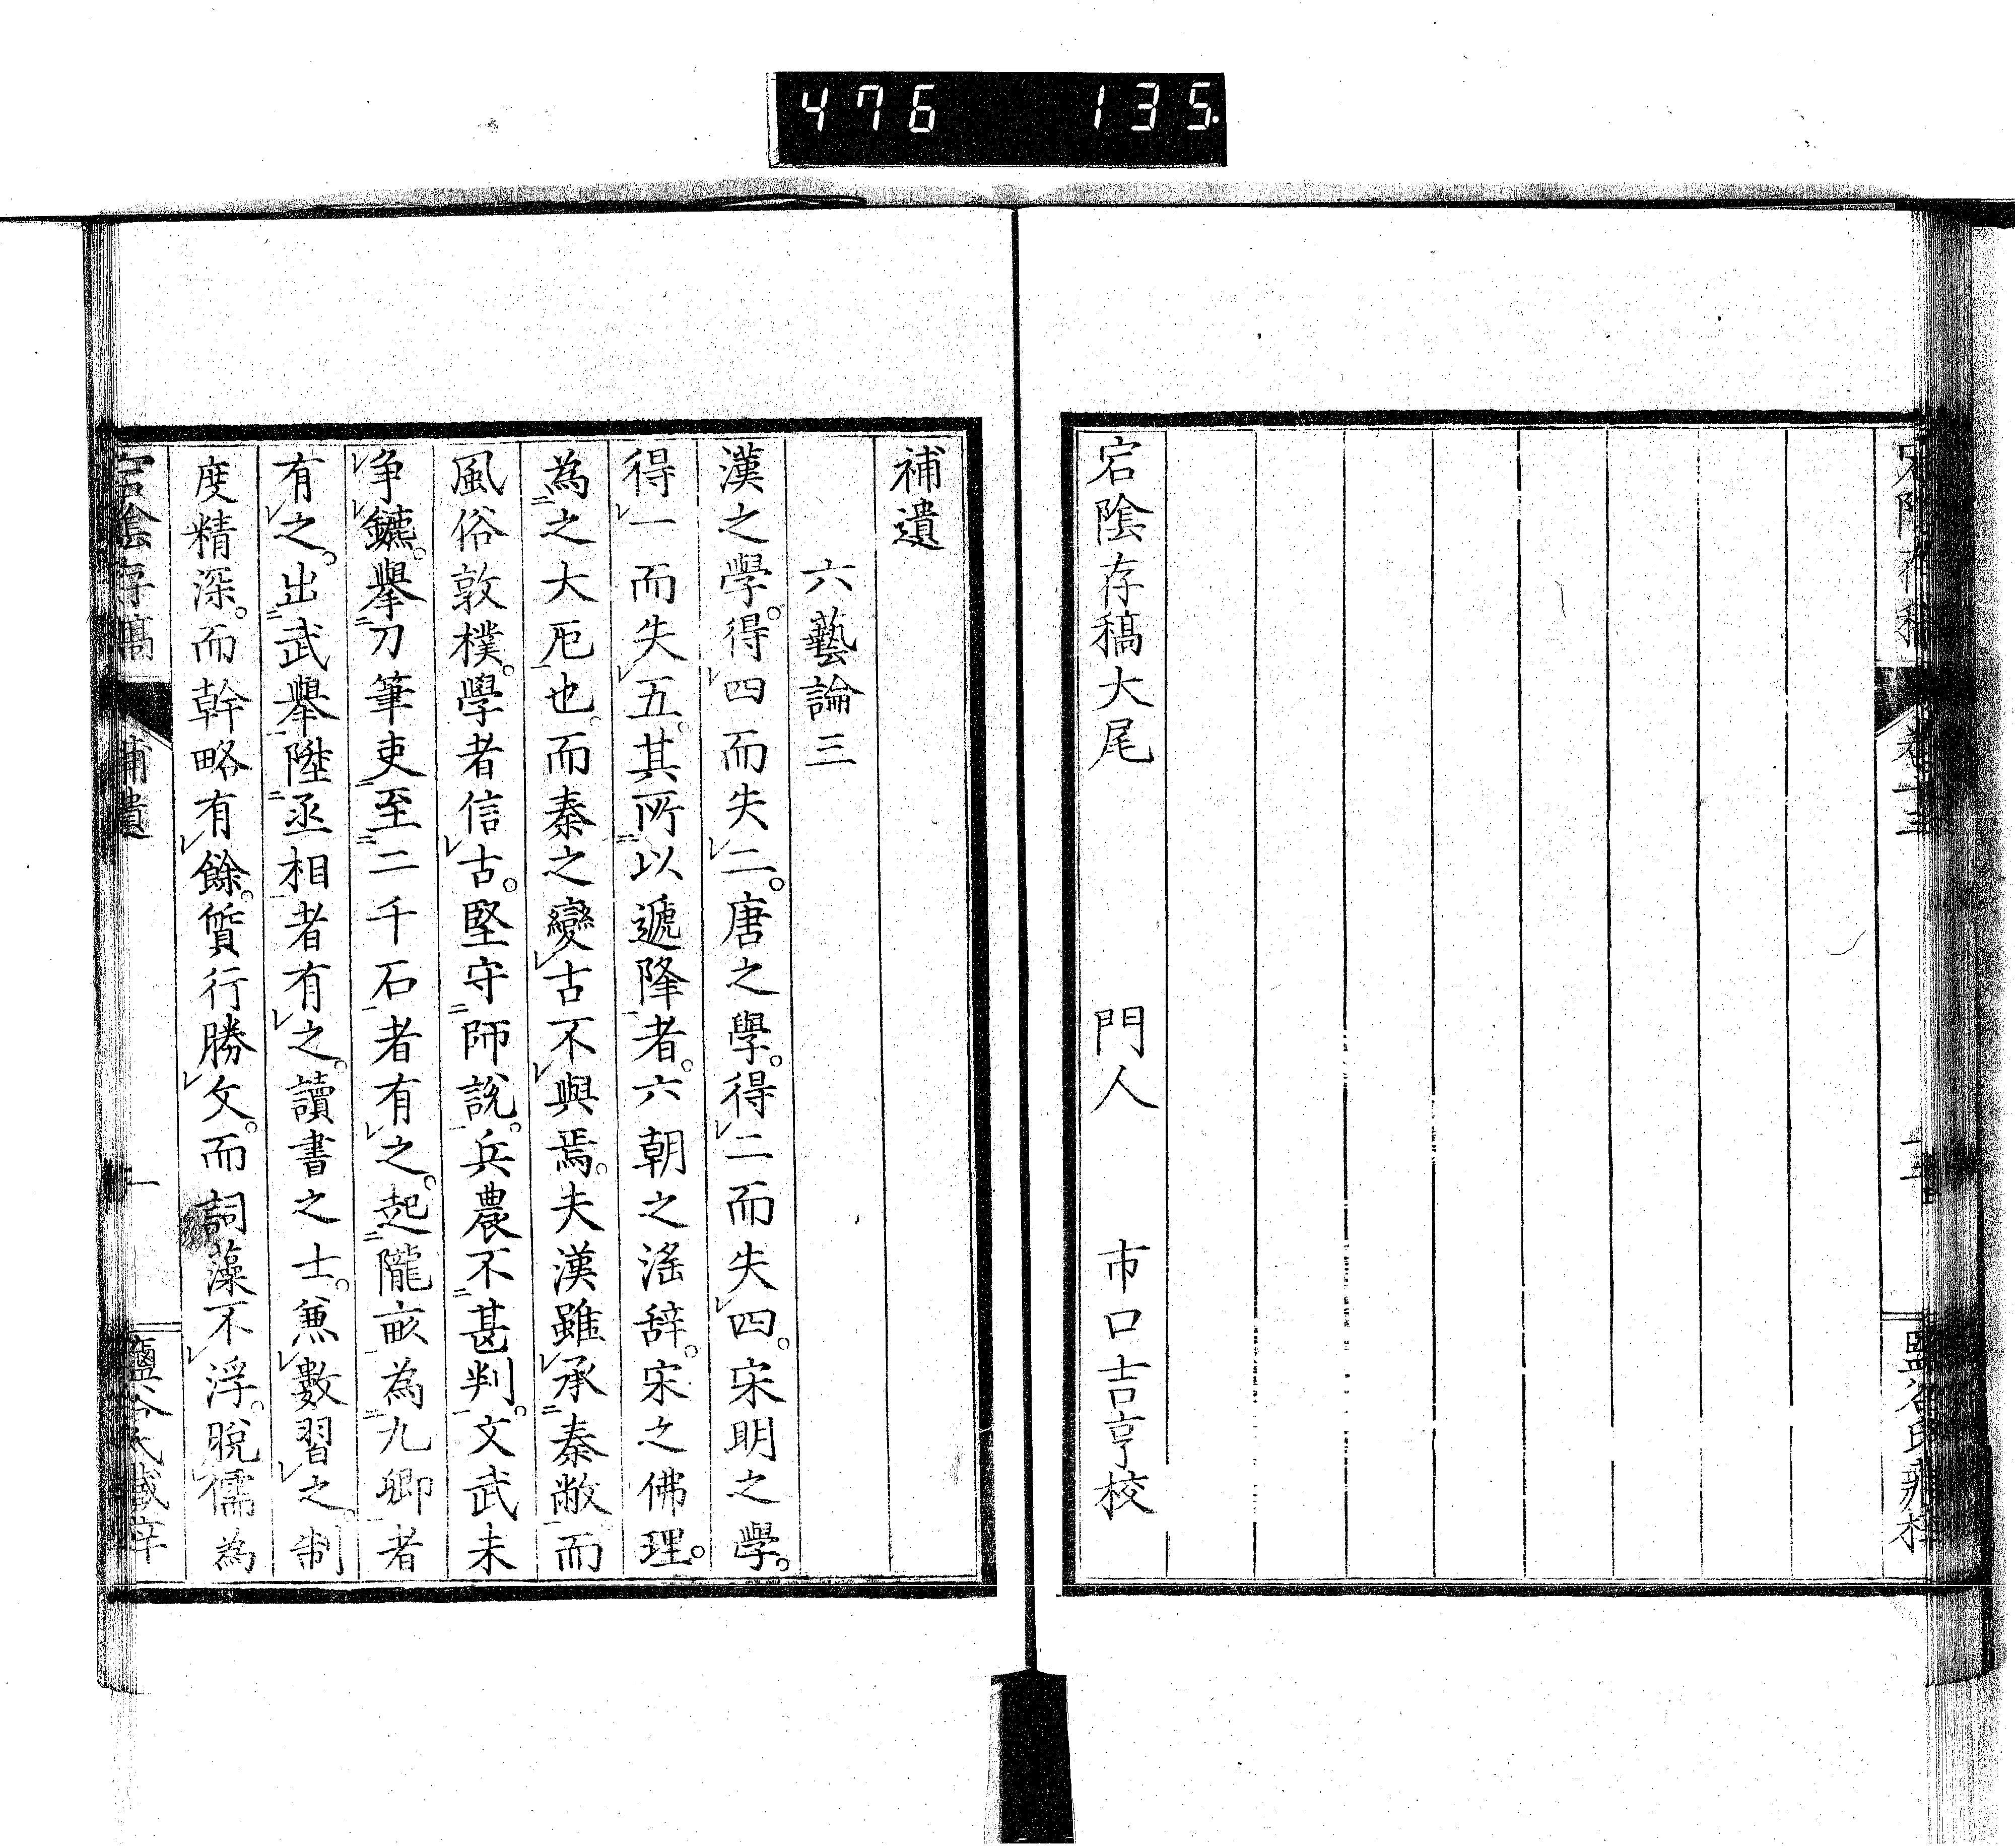 476 135.
宕陰存稿 卷十三
宕陰存稿大尾 門人 市口吉亨校
補遺
六藝論三
漢之學。得四而失二。唐之學。得二而失四。宋明之學。
得一而失五。其所以遞降者。六朝之淫辞。宋之佛理。
為之大厄也。而秦之變古不與焉。夫漢雖承秦敝而
風俗敦樸。學者信古。堅守師說。兵農不甚判。文武未
争鑣。擧刀筆吏至二千石者有之。起隴畝為九卿者
有之。出武擧陞丞相者有之。讀書之士。兼數習之。制
度精深。而幹略有餘。質行勝文。而詞藻不浮。脫儒為
宕陰存稿 補遺 一 鹽谷氏藏梓